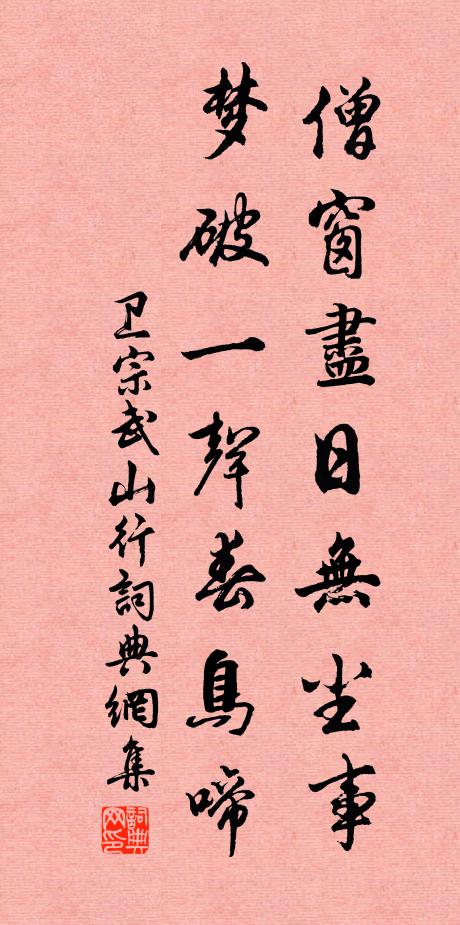 僧窗盡日無尘事
梦破一聲春鳥啼
卫宗武山行詞典網集
詞典网印